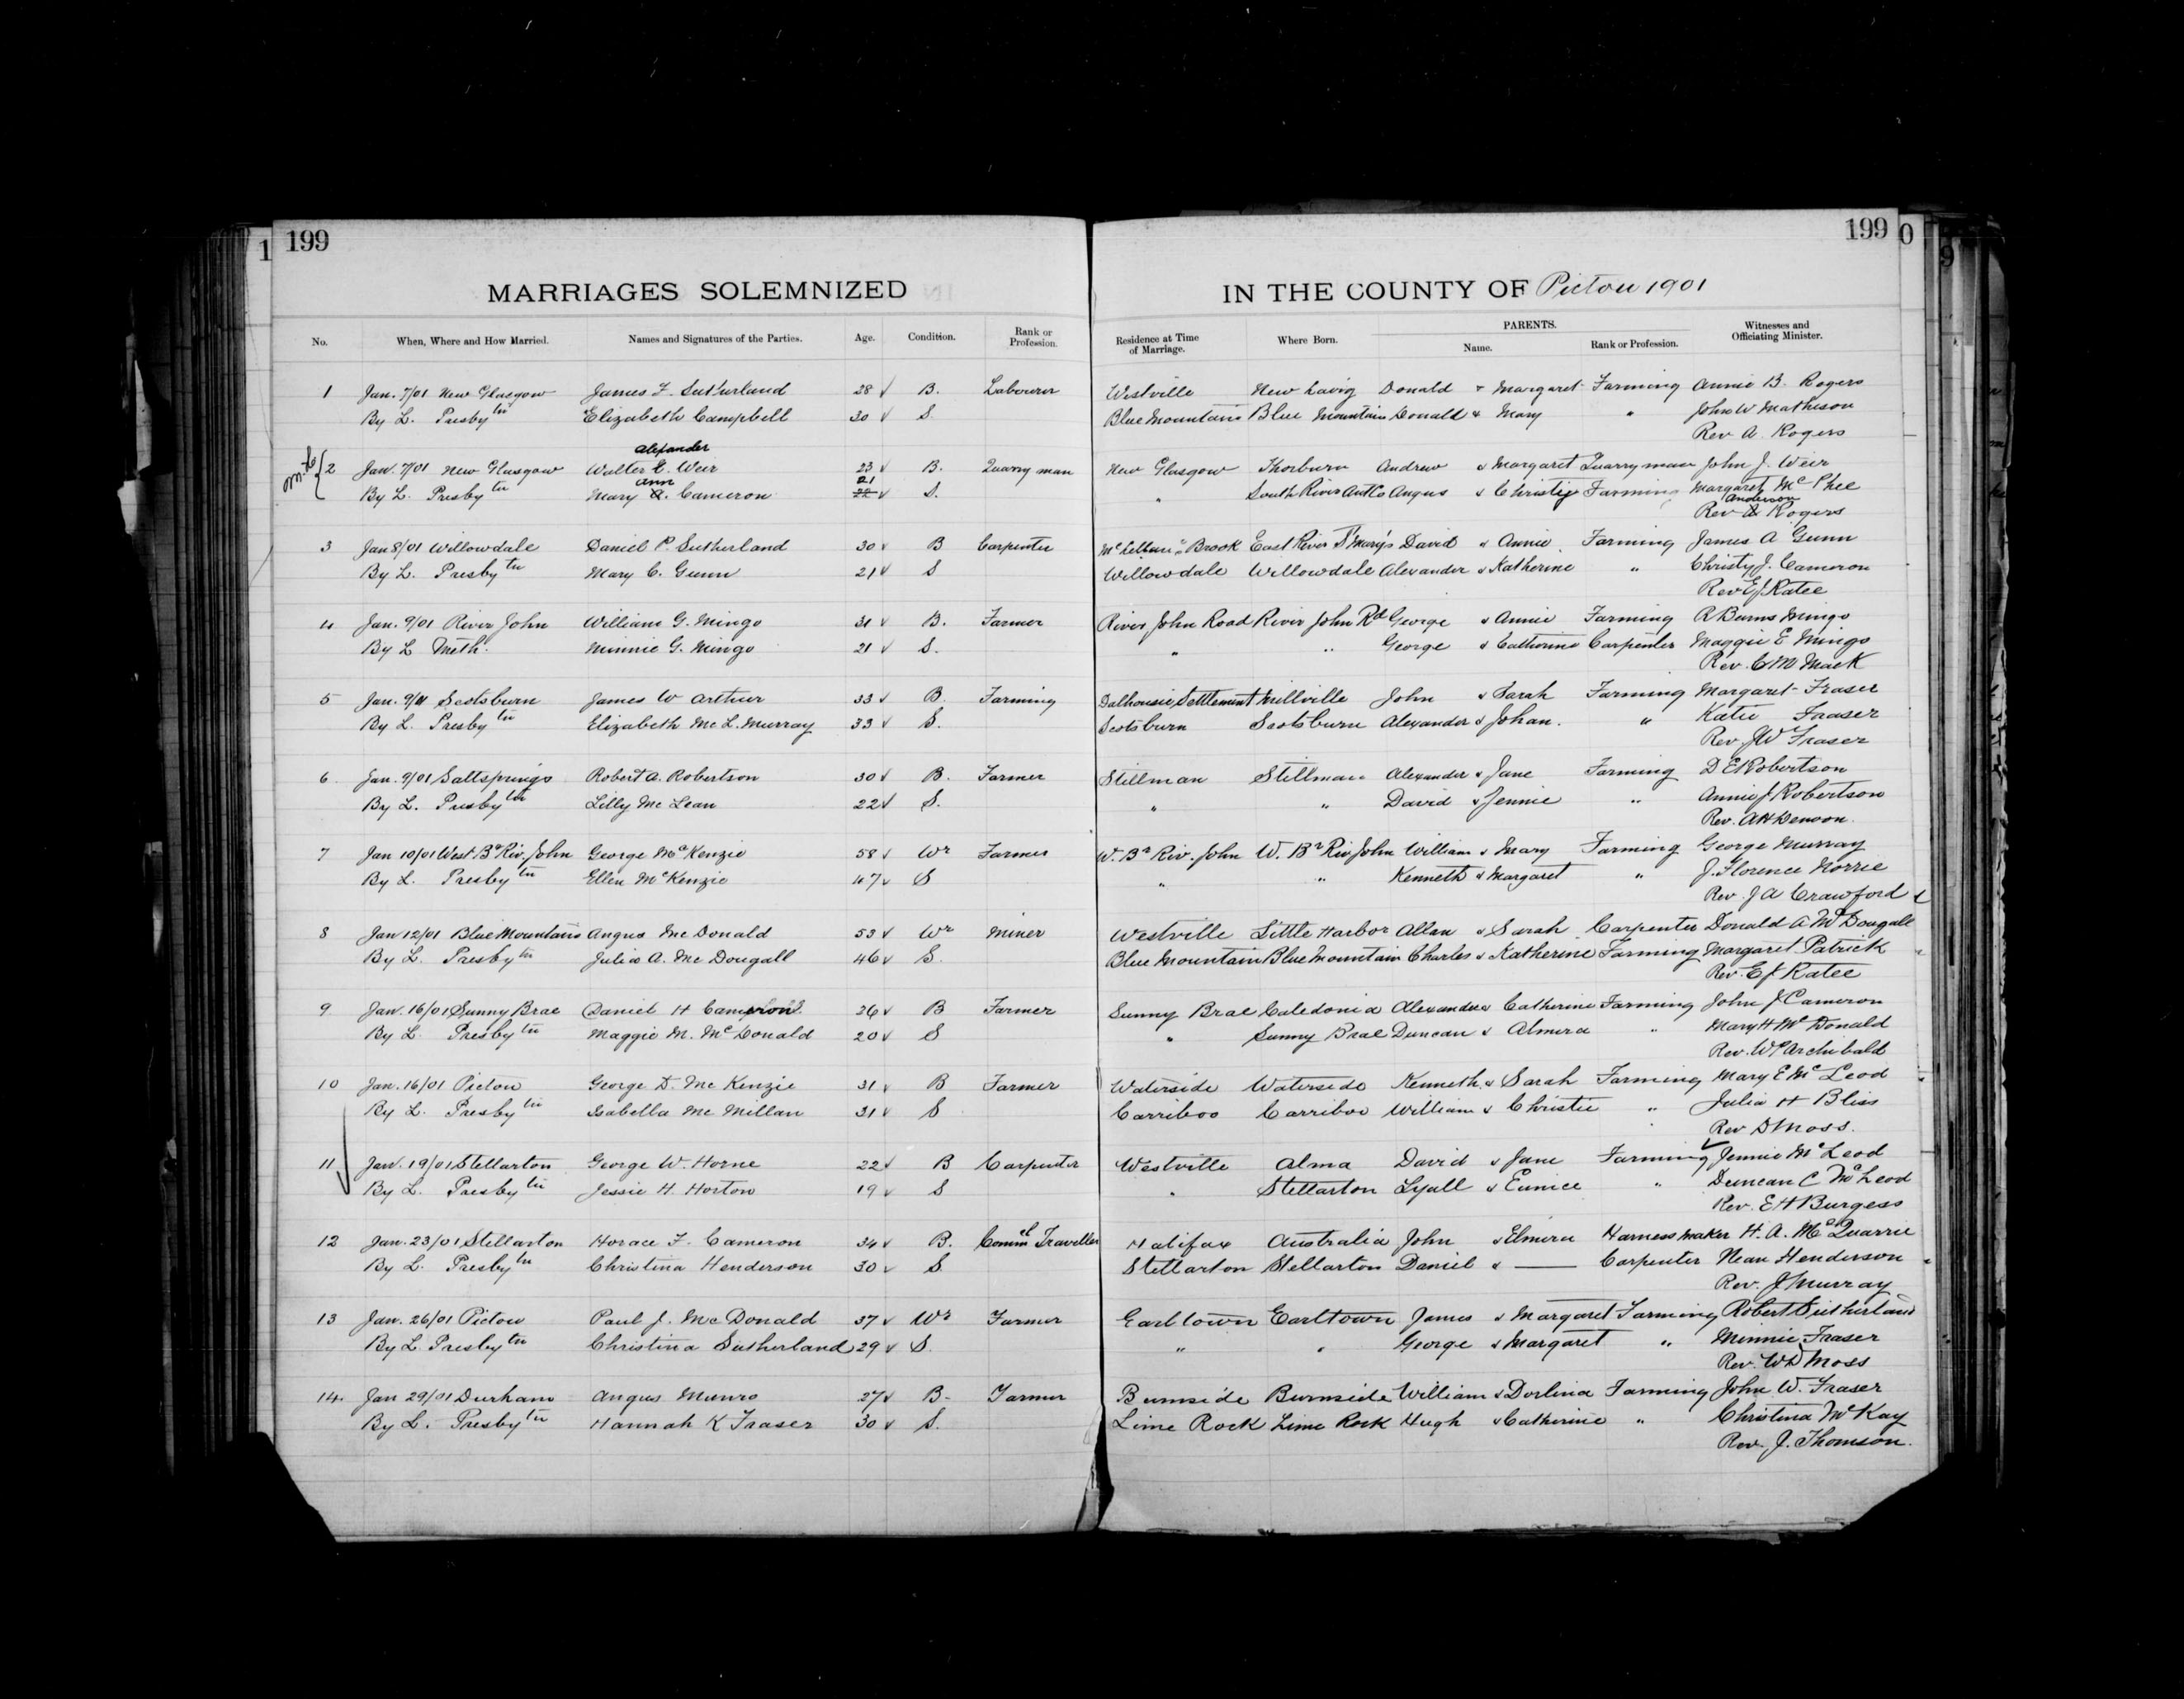 1 199 199 0 9
MARRIAGES SOLEMNIZED IN THE COUNTY OF Pictou 1901
No. When, Where and How Married. Names and Signatures of the Parties. Age. Condition. Rank or Profession. Residence at Time of Marriage. Where Born. PARENTS. Name. Rank or Profession. Witnesses and Officiating Minister.
1 Jan. 7/01 New Glasgow James F. Sutherland 28 B. Labourer Westville New Donald & Margaret Farming Annie B. Rogers
By L. Presbytn Elizabeth Campbell 30 S Blue Mountain Blue Mountain Donald & Mary " John W Matheson
Rev A. Rogers
Alexander
2 Jan. 7/01 New Glasgow Walter E. Weir 23 B. Quarry man New Glasgow Thorburn Andrew & Margaret Quarry man John J. Weir
Ann 21
By L. Presbytn Mary A. Cameron 22 S. " South River Ant Co Angus & Christy Farming Margaret McPhee
Anderson
Rev A Rogers
3 Jan 8/01 Willowdale Daniel P. Sutherland 30 B Carpenter McLellan's Brook East River St Mary's David & Annie Farming James A Gunn
By L. Presbytn Mary C. Gunn 21 S Willowdale Willowdale Alexander & Katherine " Christy J. Cameron
Rev E J Ratee
4 Jan. 9/01 River John William G. Mingo 31 B. Farmer River John Road River John Rd George & Annie Farming R Burns Mingo
By L Meth. Minnie G. Mingo 21 S. " " George & Catherine Carpenter Maggie E Mingo
Rev. C M Mack
5 Jan. 9/01 Scotsburn James W Arthur 33 B. Farming Dalhousie Settlement Millville John & Sarah Farming Margaret Fraser
By L. Presbytn Elizabeth Mc L. Murray 33 S. Scotsburn Scotsburn Alexander & Johan. " Katie Fraser
Rev. J W Fraser
6 Jan. 9/01 Saltsprings Robert A. Robertson 30 B. Farmer Stillman Stillman Alexander & Jane Farming D E Robertson
By L. Presbytn Lilly McLean 22 S. " " David & Jennie " Annie J Robertson
Rev. A H Denoon.
7 Jan 10/01 West Br Riv. John George McKenzie 58 Wr Farmer W. Br Riv. John W. Br Riv John William & Mary Farming George Murray
By L. Presbytn Ellen McKenzie 47 S " " Kenneth & Margaret " J. Florence Norrie
Rev. J A Crawford
8 Jan 12/01 Blue Mountain Angus McDonald 53 Wr Miner Westville Little Harbor Allan & Sarah Carpenter Donald A McDougall
By L. Presbytn Julia A. McDougall 46 S. Blue Mountain Blue Mountain Charles & Katherine Farming Margaret Patrick
Rev. E J Ratee
9 Jan. 16/01 Sunny Brae Daniel H Cameron 26 B Farmer Sunny Brae Caledonia Alexander & Catherine Farming John J Cameron
By L. Presbytn Maggie M. McDonald 20 S " Sunny Brae Duncan & Almira " Mary H McDonald
Rev. W P Archibald
10 Jan. 16/01 Pictou George D. McKenzie 31 B Farmer Waterside Waterside Kenneth & Sarah Farming Mary E McLeod
By L. Presbytn Isabella McMillan 31 S Carriboo Carriboo William & Christie " Julia H Bliss
Rev D Moss.
11 Jan. 19/01 Stellarton George W. Horne 22 B Carpenter Westville Alma David & Jane Farming Jennie McLeod
By L. Presbytn Jessie H. Horton 19 S " Stellarton Lyall & Eunice " Duncan C McLeod
Rev. E H Burgess
12 Jan. 23/01 Stellarton Horace F. Cameron 34 B. Comml Traveller Halifax Australia John & Elmira Harness maker H. A. McQuarrie
By L. Presbytn Christina Henderson 30 S Stellarton Stellarton Daniel & — Carpenter Nean Henderson
Rev. J Murray
13 Jan. 26/01 Pictou Paul J. McDonald 37 Wr Farmer Earltown Earltown James & Margaret Farming Robert Sutherland
By L. Presbytn Christina Sutherland 29 S. " " George & Margaret " Minnie Fraser
Rev. W D Moss
14. Jan 29/01 Durham Angus Munro 27 B. Farmer Burnside Burnside William & Dorlina Farming John W. Fraser
By L. Presbytn Hannah K Fraser 30 S. Lime Rock Lime Rock Hugh & Catherine " Christina McKay
Rev. J. Thomson.